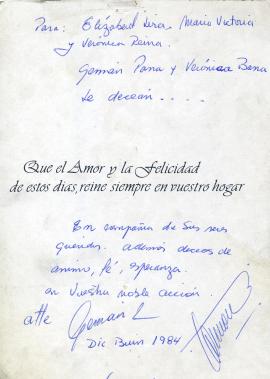 Para: Elizabeth Lera Maria Victoria
y Verónica Reina.
Germán Parra y Verónica
Le desean . . . .
Que el Amor y la Felicidad
de estos dias, reine siempre en vuestro hogar
En compañia de sus seres
queridos. Además deseos de
animo, fé, esperanza.
en Vuestra noble acción.
atte German L
Dic 1984